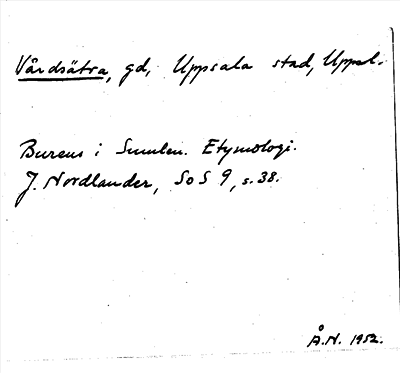 Vårdsätra, gd, Uppsala stad, Uppl.
Bureus i Sumlen. Etymologi.
J. Nordlander, SoS 9, s. 38.
Å.N. 1952.